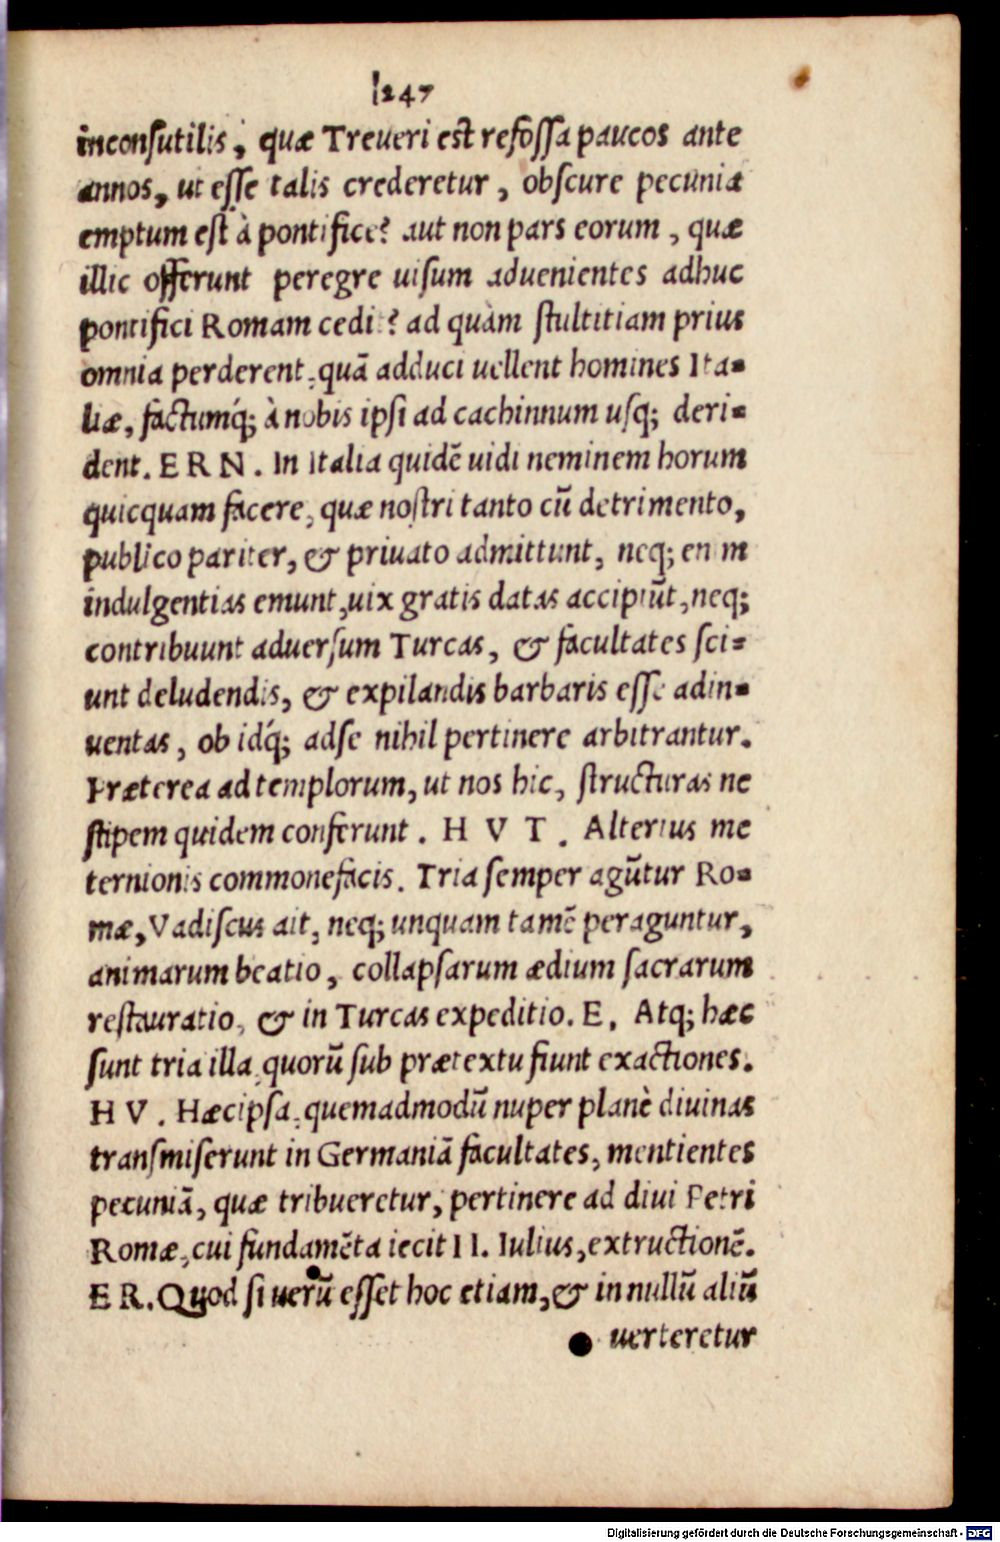 247
inconsutilis, quæ Treueri est refossa paucos ante
annos, ut esse talis crederetur, obscure pecunia
emptum est à pontifice? aut non pars eorum, quæ
illic offerunt peregre uisum aduenientes adhuc
pontifici Romam cedit? ad quàm stultitiam prius
omnia perderent, quã adduci uellent homines Ita=
liæ, factumq́; à nobis ipsi ad cachinnum usq; deri=
dent. E R N. In Italia quidẽ uidi neminem horum
quicquam facere, quæ nostri tanto cũ detrimento,
publico pariter, & priuato admittunt, neq; enim
indulgentias emunt, uix gratis datas accipiũt, neq;
contribuunt aduersum Turcas, & facultates sci=
unt deludendis, & expilandis barbaris esse adin=
uentas, ob idq́; adse nihil pertinere arbitrantur.
Præterea ad templorum, ut nos hic, structuras ne
stipem quidem conferunt. H V T. Alterius me
ternionis commonefacis. Tria semper agũtur Ro=
mæ, Vadiscus ait, neq; unquam tamẽ peraguntur,
animarum beatio, collapsarum ædium sacrarum
restauratio, & in Turcas expeditio. E. Atq; hæc
sunt tria illa, quorũ sub prætextu fiunt exactiones.
H V. Hæc ipsa, quemadmodũ nuper planè diuinas
transmiserunt in Germaniã facultates, mentientes
pecuniã, quæ tribueretur, pertinere ad diui Petri
Romæ, cui fundamẽta iecit II. Iulius, extructionẽ.
E R. Quod si uerũ esset hoc etiam, & in nullũ aliũ
uerteretur
Digitalisierung gefördert durch die Deutsche Forschungsgemeinschaft - DFG